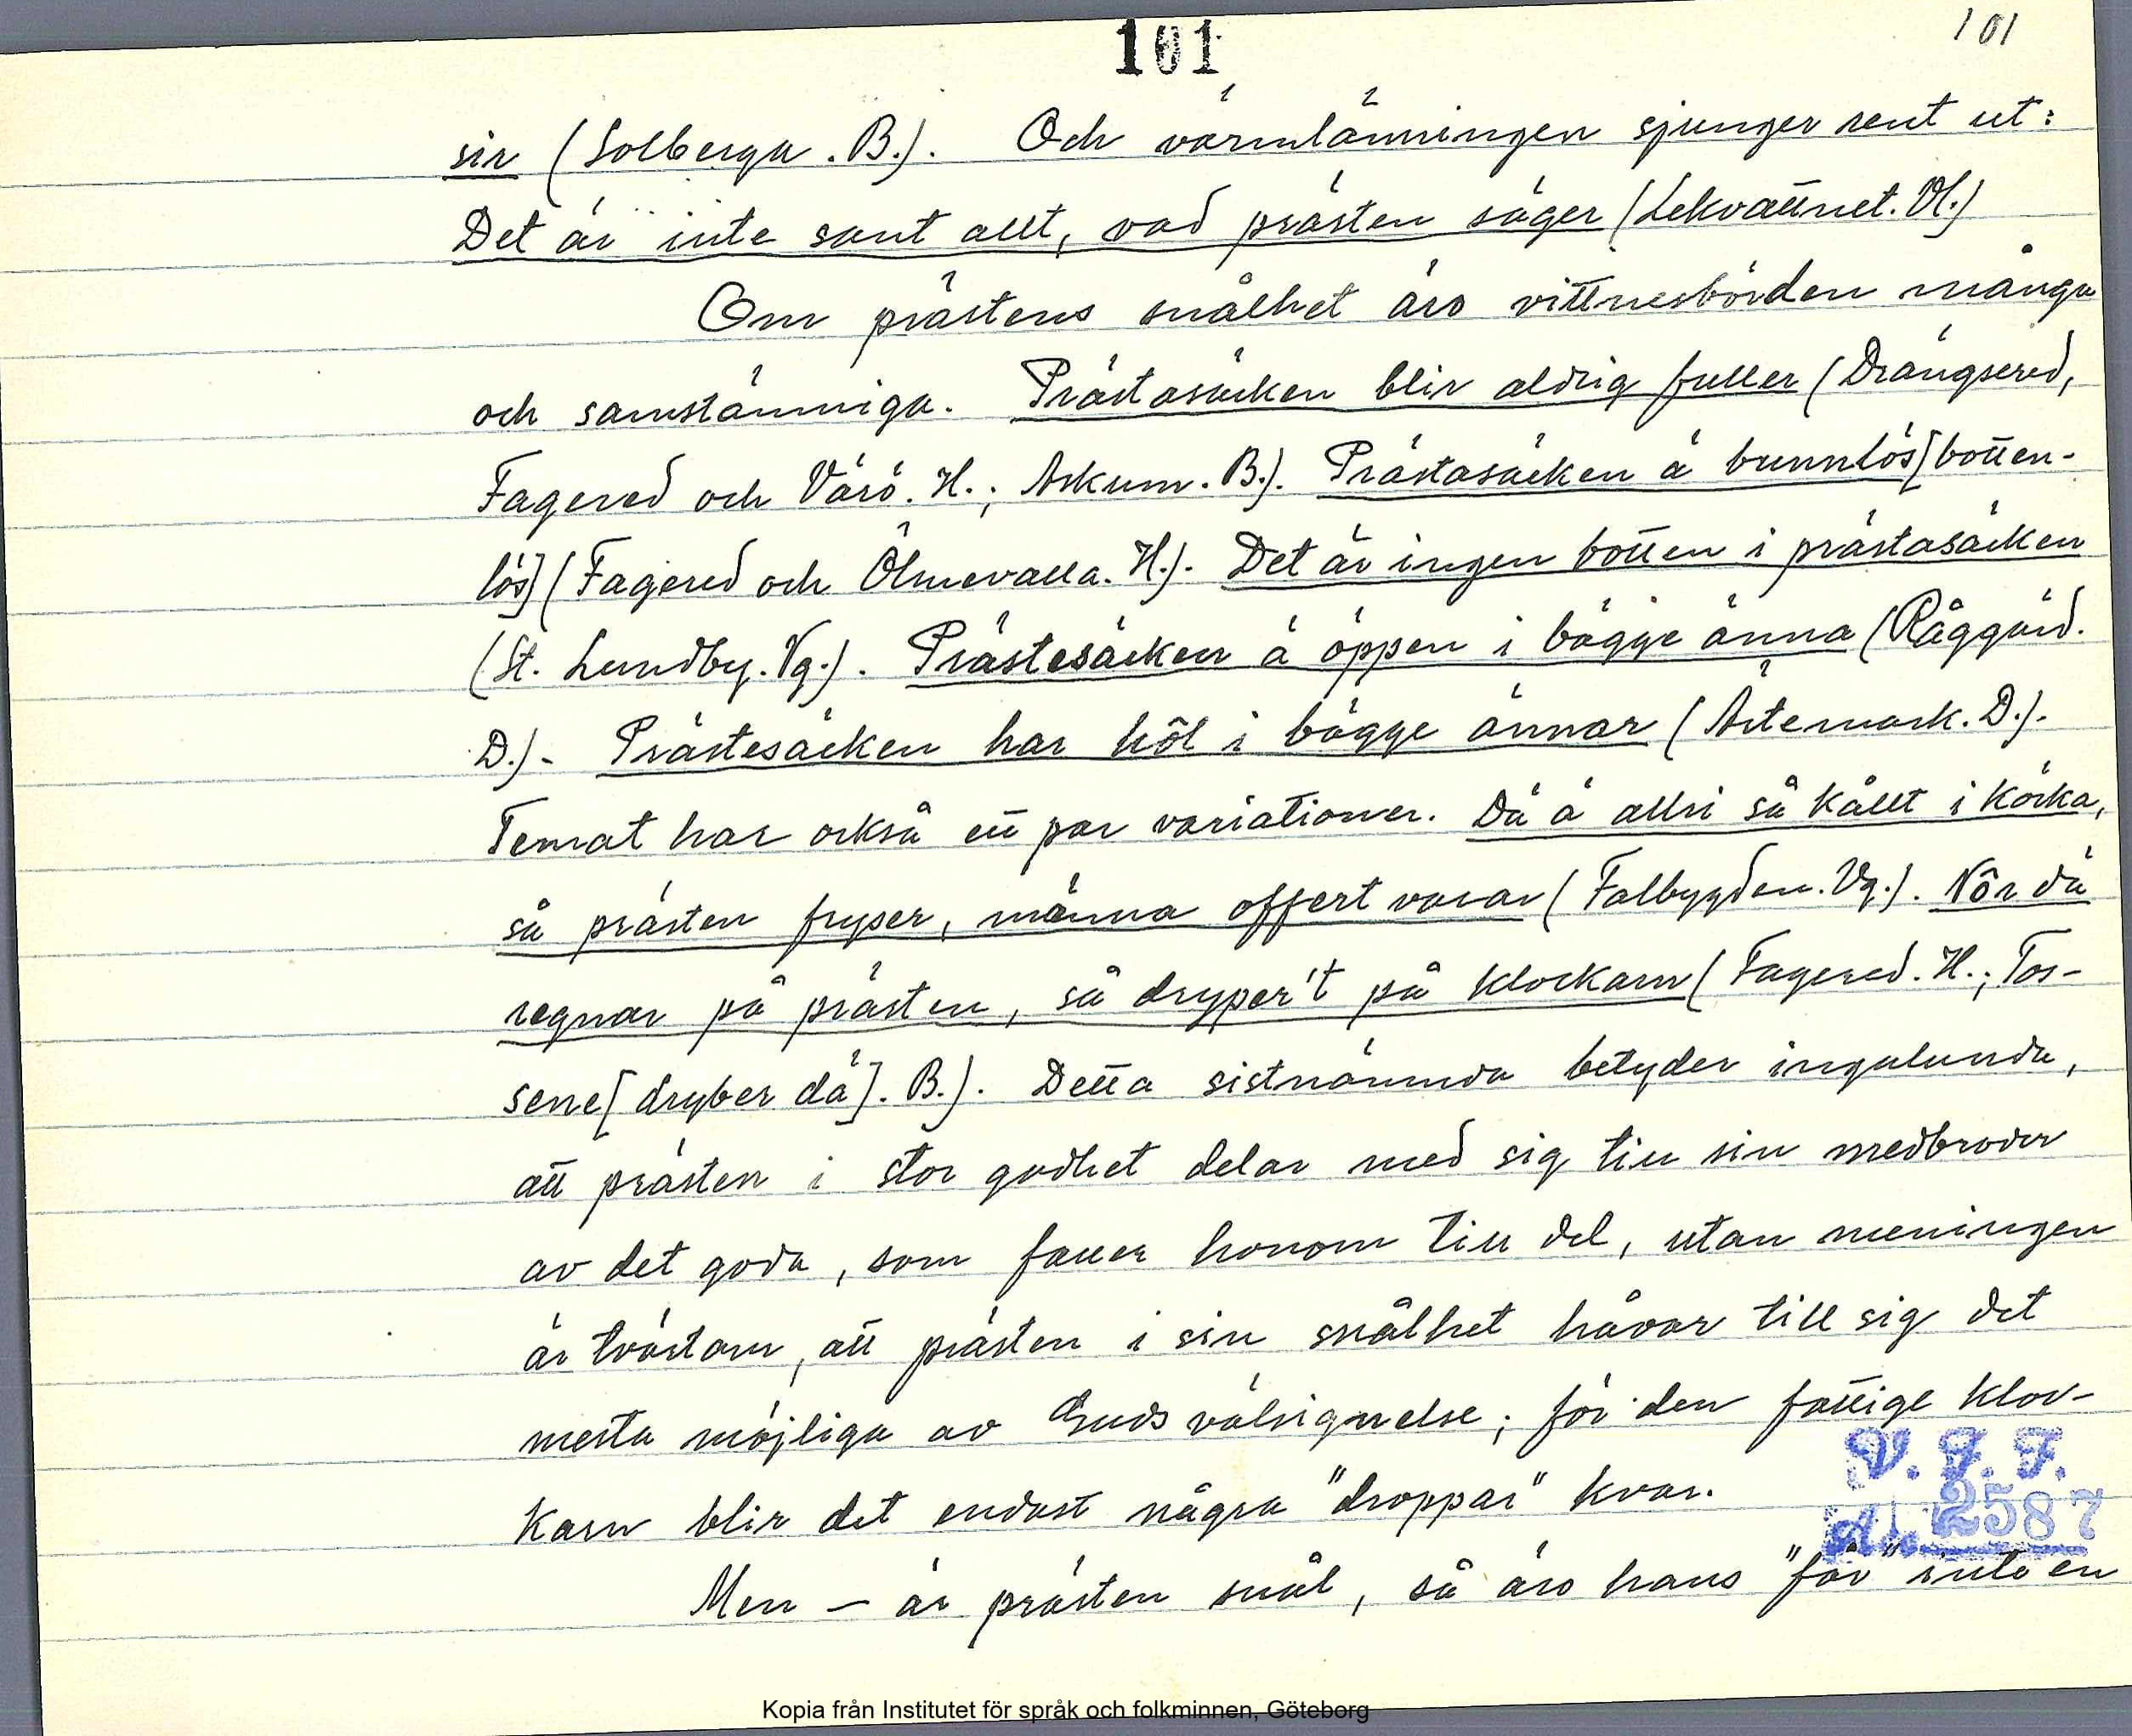 101
101
sir (Solberga. B.). Och värmlänningen sjunger rent ut:
Det är inte sant allt, vad prästen säger (Lekvattnet. Vl.)
Om prästens snålhet äro vittnesbörden många
och samstämmiga. Prästasäcken blir aldrig fuller (Drängsered,
Fagered och Värö. H.; Askum. B.). Prästasäcken ä bunnlös [botten-
lös] (Fagered och Ölmevalla. H.). Det är ingen botten i prästasäcken
(St. Lundby. Vg.). Prästesäcken ä öppen i bägge änna (Råggärd.
D.). Prästesäcken har hôl i bägge ännar (Ärtemark. D.).
Temat har också ett par variationer. Dä ä allri så kållt i körka,
så prästen fryser, männa offert varar (Falbygden. Vg.). Nôr dä
regnar på prästen, så dryper't på klockarn (Fagered. H.; Tos-
sene [dryber dä]. B.). Detta sistnämnda betyder ingalunda,
att prästen i stor godhet delar med sig till sin medbroder
av det goda, som faller honom till del, utan meningen
är tvärtom, att prästen i sin snålhet håvar till sig det
mesta möjliga av Guds välsignelse; för den fattige kloc-
karn blir det endast några "droppar" kvar.
V. F. F.
Acc. 2587
Men – är prästen snål, så äro hans "får" inte en
Kopia från Institutet för språk och folkminnen, Göteborg